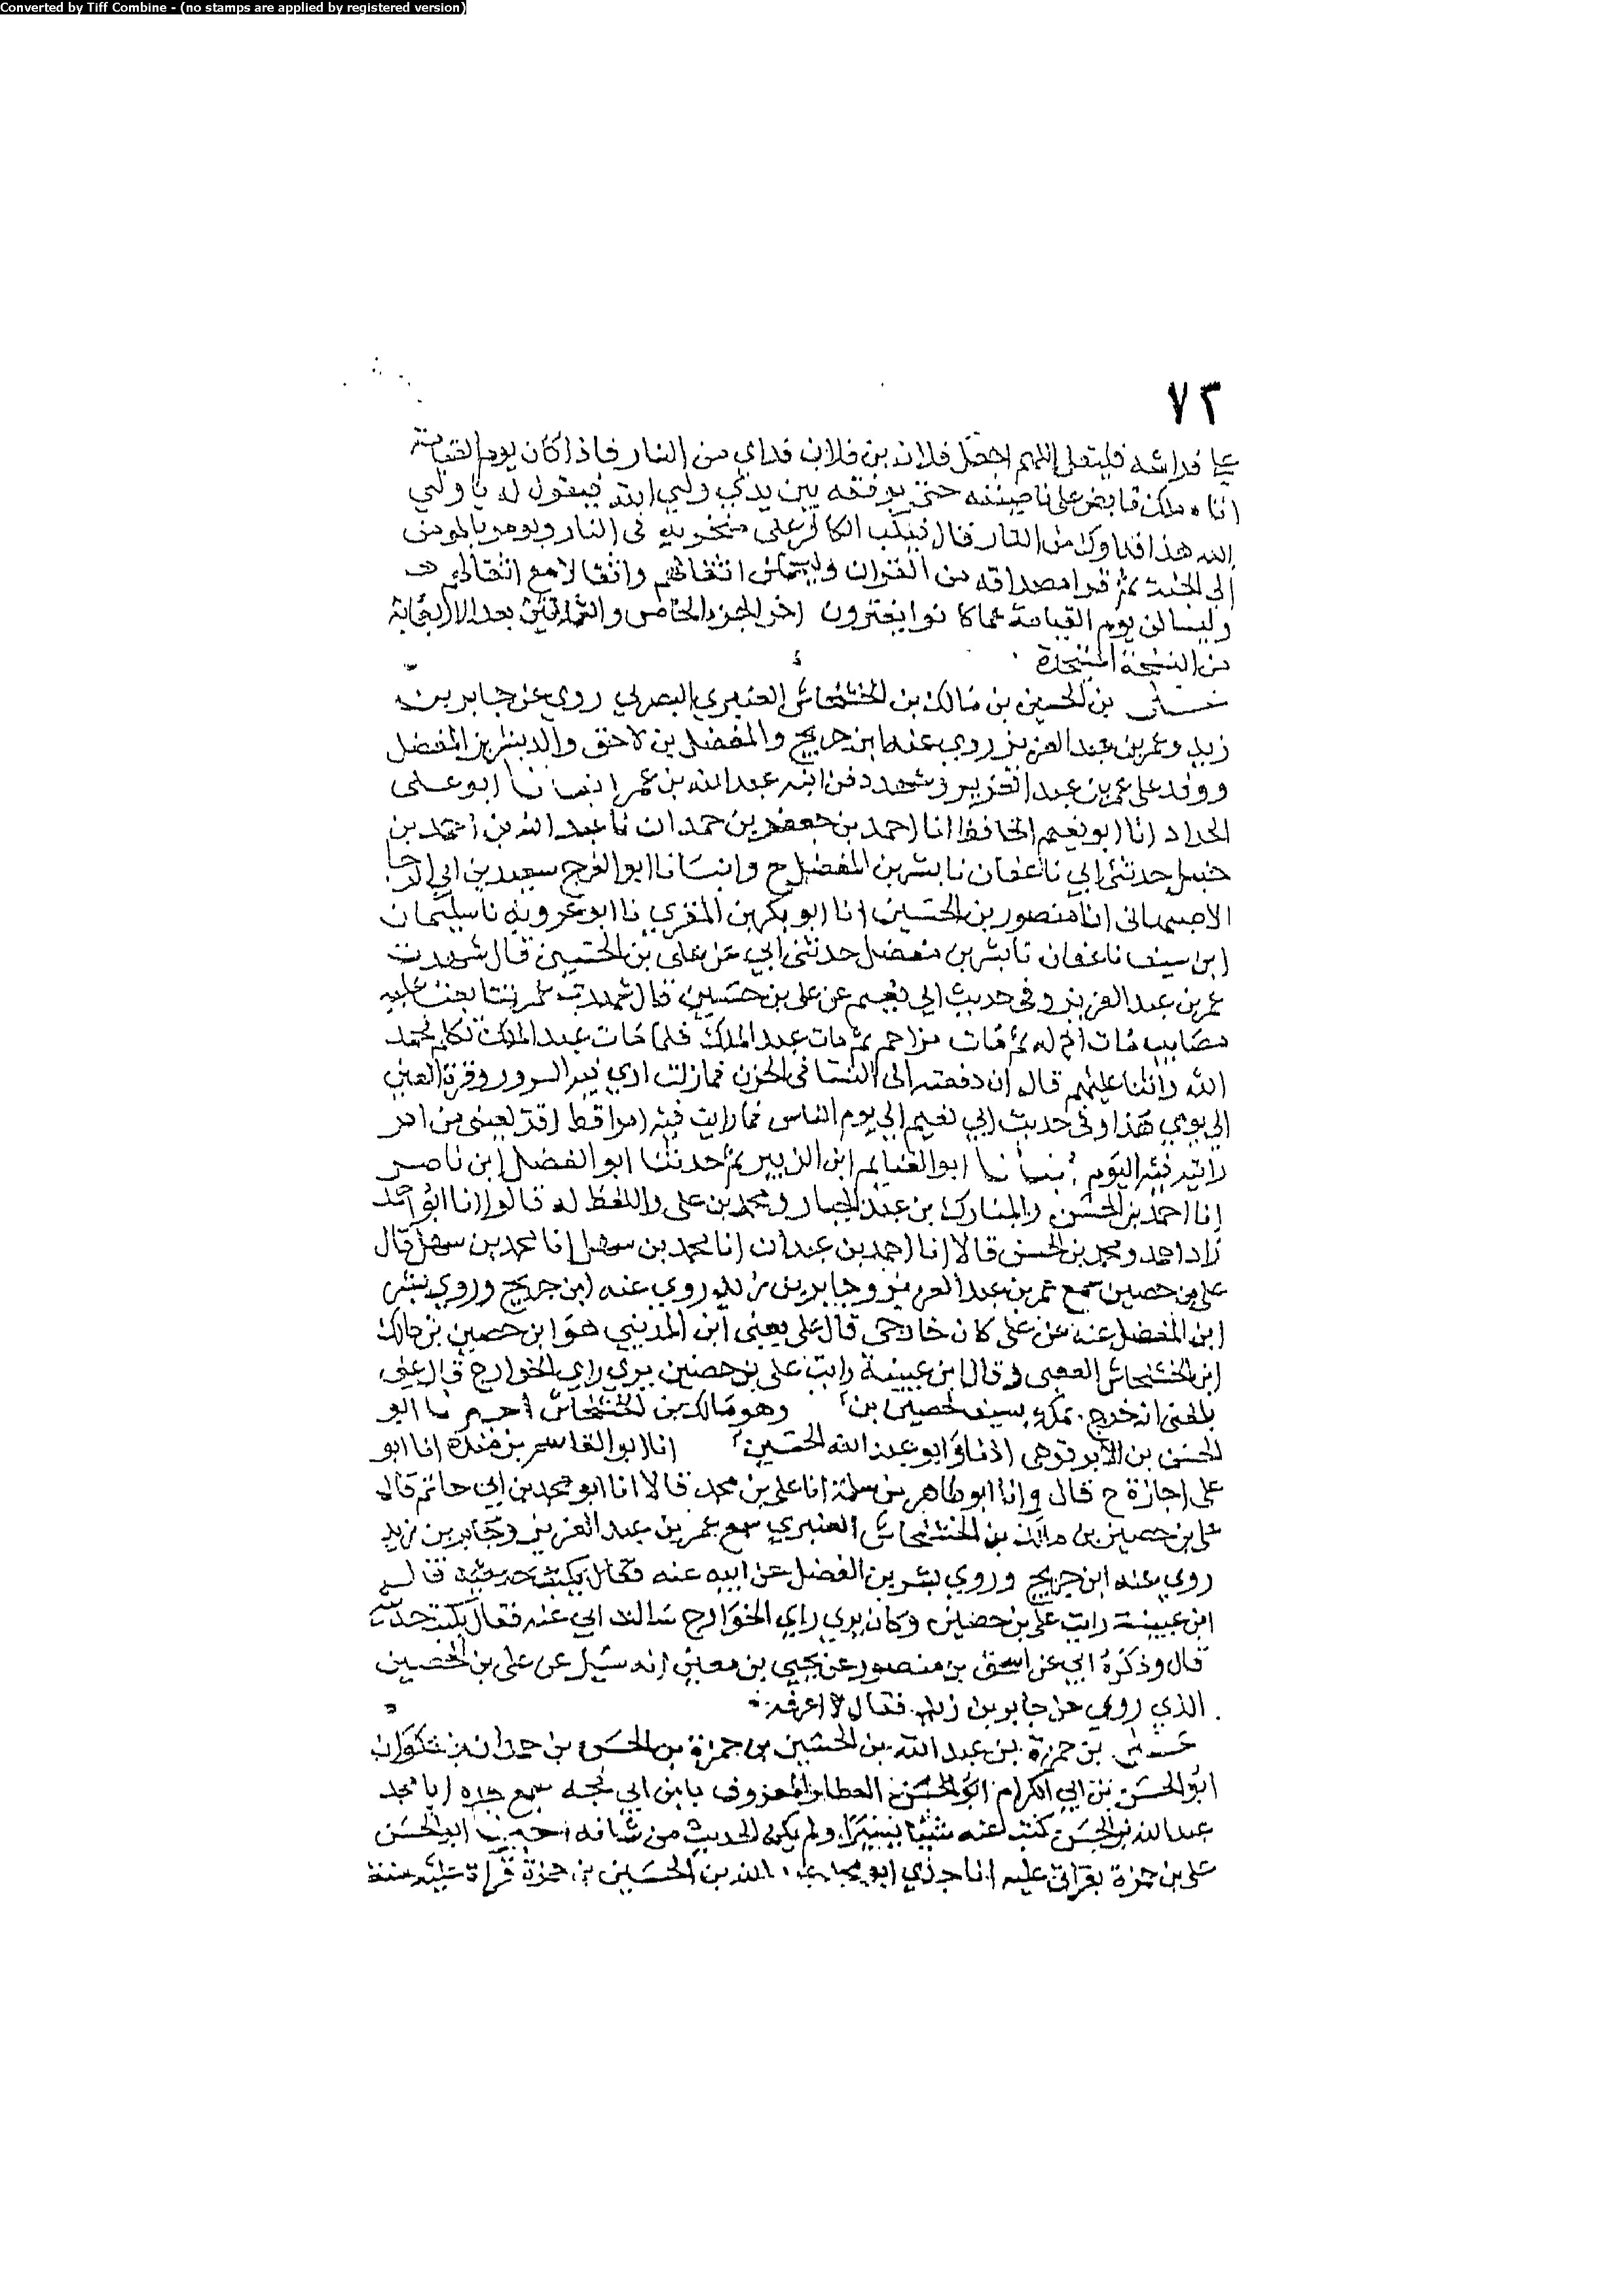 Converted by Tiff Combine - (no stamps are applied by registered version)
٧٣
على فراشه فليقل اللهم اجعل فلان بن فلان فداي من النار فاذا كان يوم القيامة
اتاه ملك قابض على ناصيته حتى يوقفه بين يدي ولي الله فيقول له يا ولي
الله هذا فداوك من النار قال فيكب الكافر على منخريه في النار ويومر بالمومن
الى الجنة ثم قرا مصداقه من القران وليحملن اثقالهم واثقالا مع اثقالهم
وليسالن يوم القيامة عما كانوا يفترون اخر الجزء الخامس والثمانين بعد الاربعماية
من النسخة المستجدة
علي بن الحصين بن مالك بن الخشخاش العنبري البصري روي عن جابر بن
زيد وعمر بن عبد العزيز روي عنه ابن جريج والمفضل بن لاحق والد بشر بن المفضل
ووفد على عمر بن عبد العزيز وشهد دفن ابنه عبد الله بن عمر انبانا ابو على
الحداد انا ابو نعيم الحافظ انا احمد بن جعفر بن حمدان نا عبد الله بن احمد بن
حنبل حدثني ابي نا عفان نا بشر بن المفضل ح وانبانا ابو الفرج سعيد بن ابي الرجا
الاصبهانى انا منصور بن الحسين انا ابو بكر بن المقري نا ابو عروبه نا سليمان
ابن سيف نا عفان نا بشر بن مفضل حدثنى ابي عن على بن الحصين قال شهدت
عمر بن عبد العزيز وفى حديث ابي نعيم عن على بن حصين قال شهدت عمر تتابعت عليه
مصايب مات اخ له ثم مات مزاحم ثم مات عبد الملك فلما مات عبد الملك تكلم فحمد
الله واثنا عليه ثم قال ان دفعته الى النسا فى الخرق فمازلت اري فيه السرور وقرة العين
الى يومي هذا وفى حديث ابي نعيم الي يوم الناس فما رايت فيه امرا قط اقر لعينى من امر
رايته فيه اليوم انبانا ابو الغنايم ابن الزبير ثم حدثنا ابو الفضل ابن ناصر
انا احمد بن الحسن والمبارك بن عبد الجبار ومحمد بن على واللفظ له قالوا انا ابو احمد
زاد احمد ومحمد بن الحسن قالا انا احمد بن عبدان انا محمد بن سهل انا محمد بن سهل قال
على بن حصين سمع عمر بن عبد العزيز وجابر بن زيد روي عنه ابن جريج وروي بشر
ابن المفضل عنه عن على كان خارجى قال على يعنى ابن المديني هو ابن حصين بن مالك
ابن الخشخاش وقال ابن عيينة رايت على بن حصين يري راي الخوارج قال على
بلغنى انه خرج بمكة بسيف الحصين بن وهو مالك بن الخشخاش اخبرنا ابو
الحسن بن الابرقوهى اذنا وابو عبد الله الحسين انا ابو القاسم بن منده انا ابو
على اجازة ح قال وانا ابو طاهر بن سلمة انا على بن محمد قالا انا ابو محمد بن ابي حاتم قال
على بن حصين بن مالك بن الخشخاش العنبري سمع عمر بن عبد العزيز وجابر بن زيد
روي عنه ابن جريج وروي بشر بن الفضل عن ابيه عنه يكتب حديثه قال
ابن عيينة رايت على بن حصين وكان يري راي الخوارج سالت ابي عنه فقال يكتب حديثه
قال وذكره ابي عن اسحق بن منصور عن يحيى بن معين انه سئل عن على بن الحصين
الذي روي عن جابر بن زيد فقال لا اعرفه
علي بن حمزة بن عبد الله بن الحسين بن حمزة بن الحسن بن حمدان بن ذكوان
ابو الحسن بن ابي الكرام ابو الحسن العطار المعروف بابن ابي فجه سمع جده ابا محمد
عبد الله بن الحسن كتبت عنه شيئا يسيرا ولم يكن الحديث من شانه اخبرنا ابو الحسن
على بن حمزة بقراتي عليه انا جدي ابو محمد عبد الله بن الحسين بن حمزة قراة عليه سنة